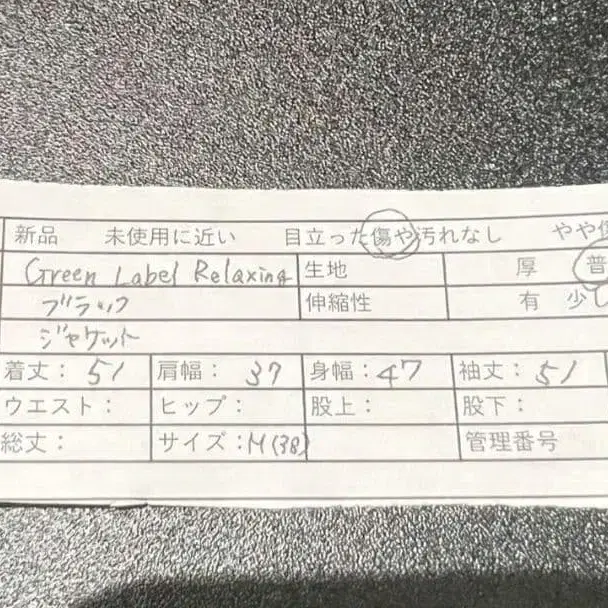 新品 未使用に近い 目立った傷や汚れなし やや傷
Green Label Relaxing 生地 厚 普
ブラック 伸縮性 有 少し
ジャケット
着丈：51 肩幅：37 身幅：47 袖丈：51
ウエスト： ヒップ： 股上： 股下：
総丈： サイズ：M(38) 管理番号